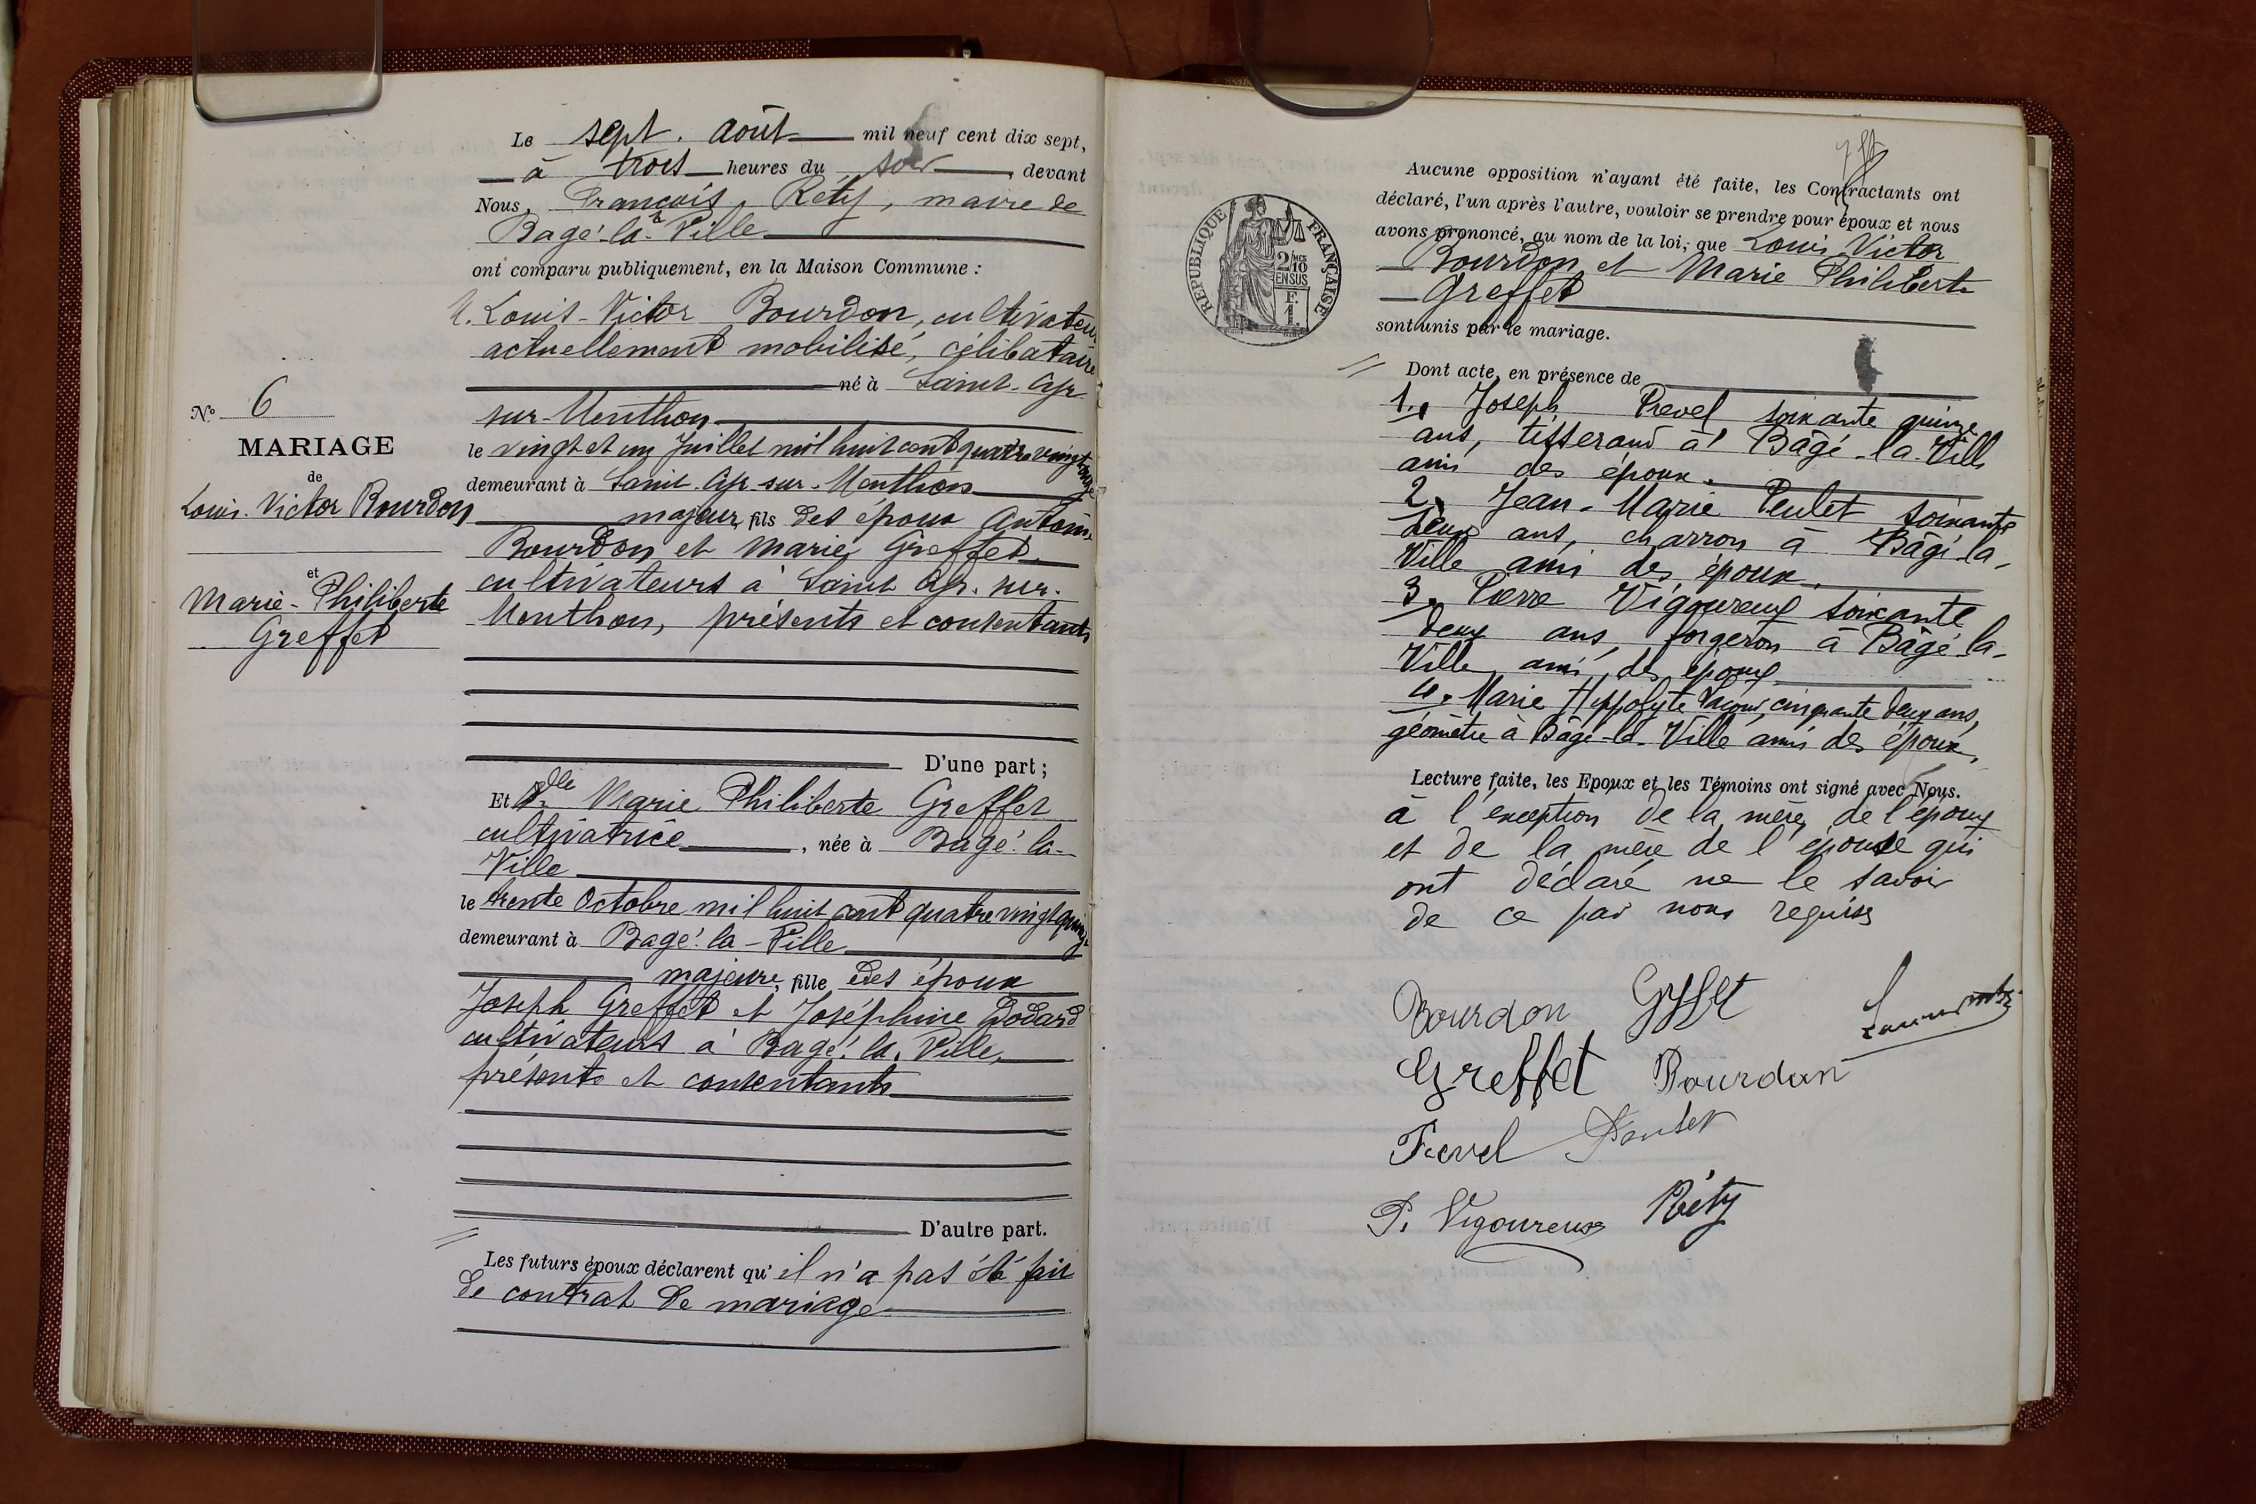 Le sept. août mil neuf cent dix sept,
à trois heures du soir, devant
Nous, François Réty, maire de
Bagé-la-Ville
ont comparu publiquement, en la Maison Commune :
M. Louis-Victor Bourdon, cultivateur
actuellement mobilisé, célibataire
né à Saint-Cyr
sur-Menthon
le vingt et un Juillet mil huit cent quatre vingt
demeurant à Saint-Cyr-sur-Menthon
majeur, fils des époux Antoine
Bourdon et Marie Greffet
cultivateurs à Saint Cyr-sur-
Menthon, présents et consentants
D'une part ;
N° 6
MARIAGE
de
Louis-Victor Bourdon
et
Marie-Philiberte
Greffet
Et Dlle Marie Philiberte Greffet
cultivatrice, née à Bagé-la-
Ville
le trente Octobre mil huit cent quatre vingt quinze
demeurant à Bagé-la-Ville
majeure, fille des époux
Joseph Greffet et Joséphine Godard
cultivateurs à Bagé-la-Ville,
présents et consentants
D'autre part.
Les futurs époux déclarent qu'il n'a pas été fait
de contrat de mariage
REPUBLIQUE FRANÇAISE
2/10 MES
EN SUS
F.
1.
Aucune opposition n'ayant été faite, les Contractants ont
déclaré, l'un après l'autre, vouloir se prendre pour époux et nous
avons prononcé, au nom de la loi, que Louis Victor
Bourdon et Marie Philiberte
Greffet
sont unis par le mariage.
Dont acte, en présence de
1. Joseph Prevel soixante quinze
ans, tisserand à Bâgé-la-Ville
ami des époux.
2. Jean-Marie Peulet soixante
deux ans, charron à Bâgé-la-
Ville ami des époux.
3. Pierre Vigoureux soixante
deux ans, forgeron à Bâgé-la-
Ville ami des époux
4. Marie Hippolyte cinquante deux ans,
géomètre à Bâgé-la-Ville amis des époux,
Lecture faite, les Epoux et les Témoins ont signé avec Nous.
à l'exception de la mère de l'époux
et de la mère de l'épouse qui
ont déclaré ne le savoir
de ce par nous requises
Bourdon Greffet
Greffet Bourdon
P. Vigoureux Réty